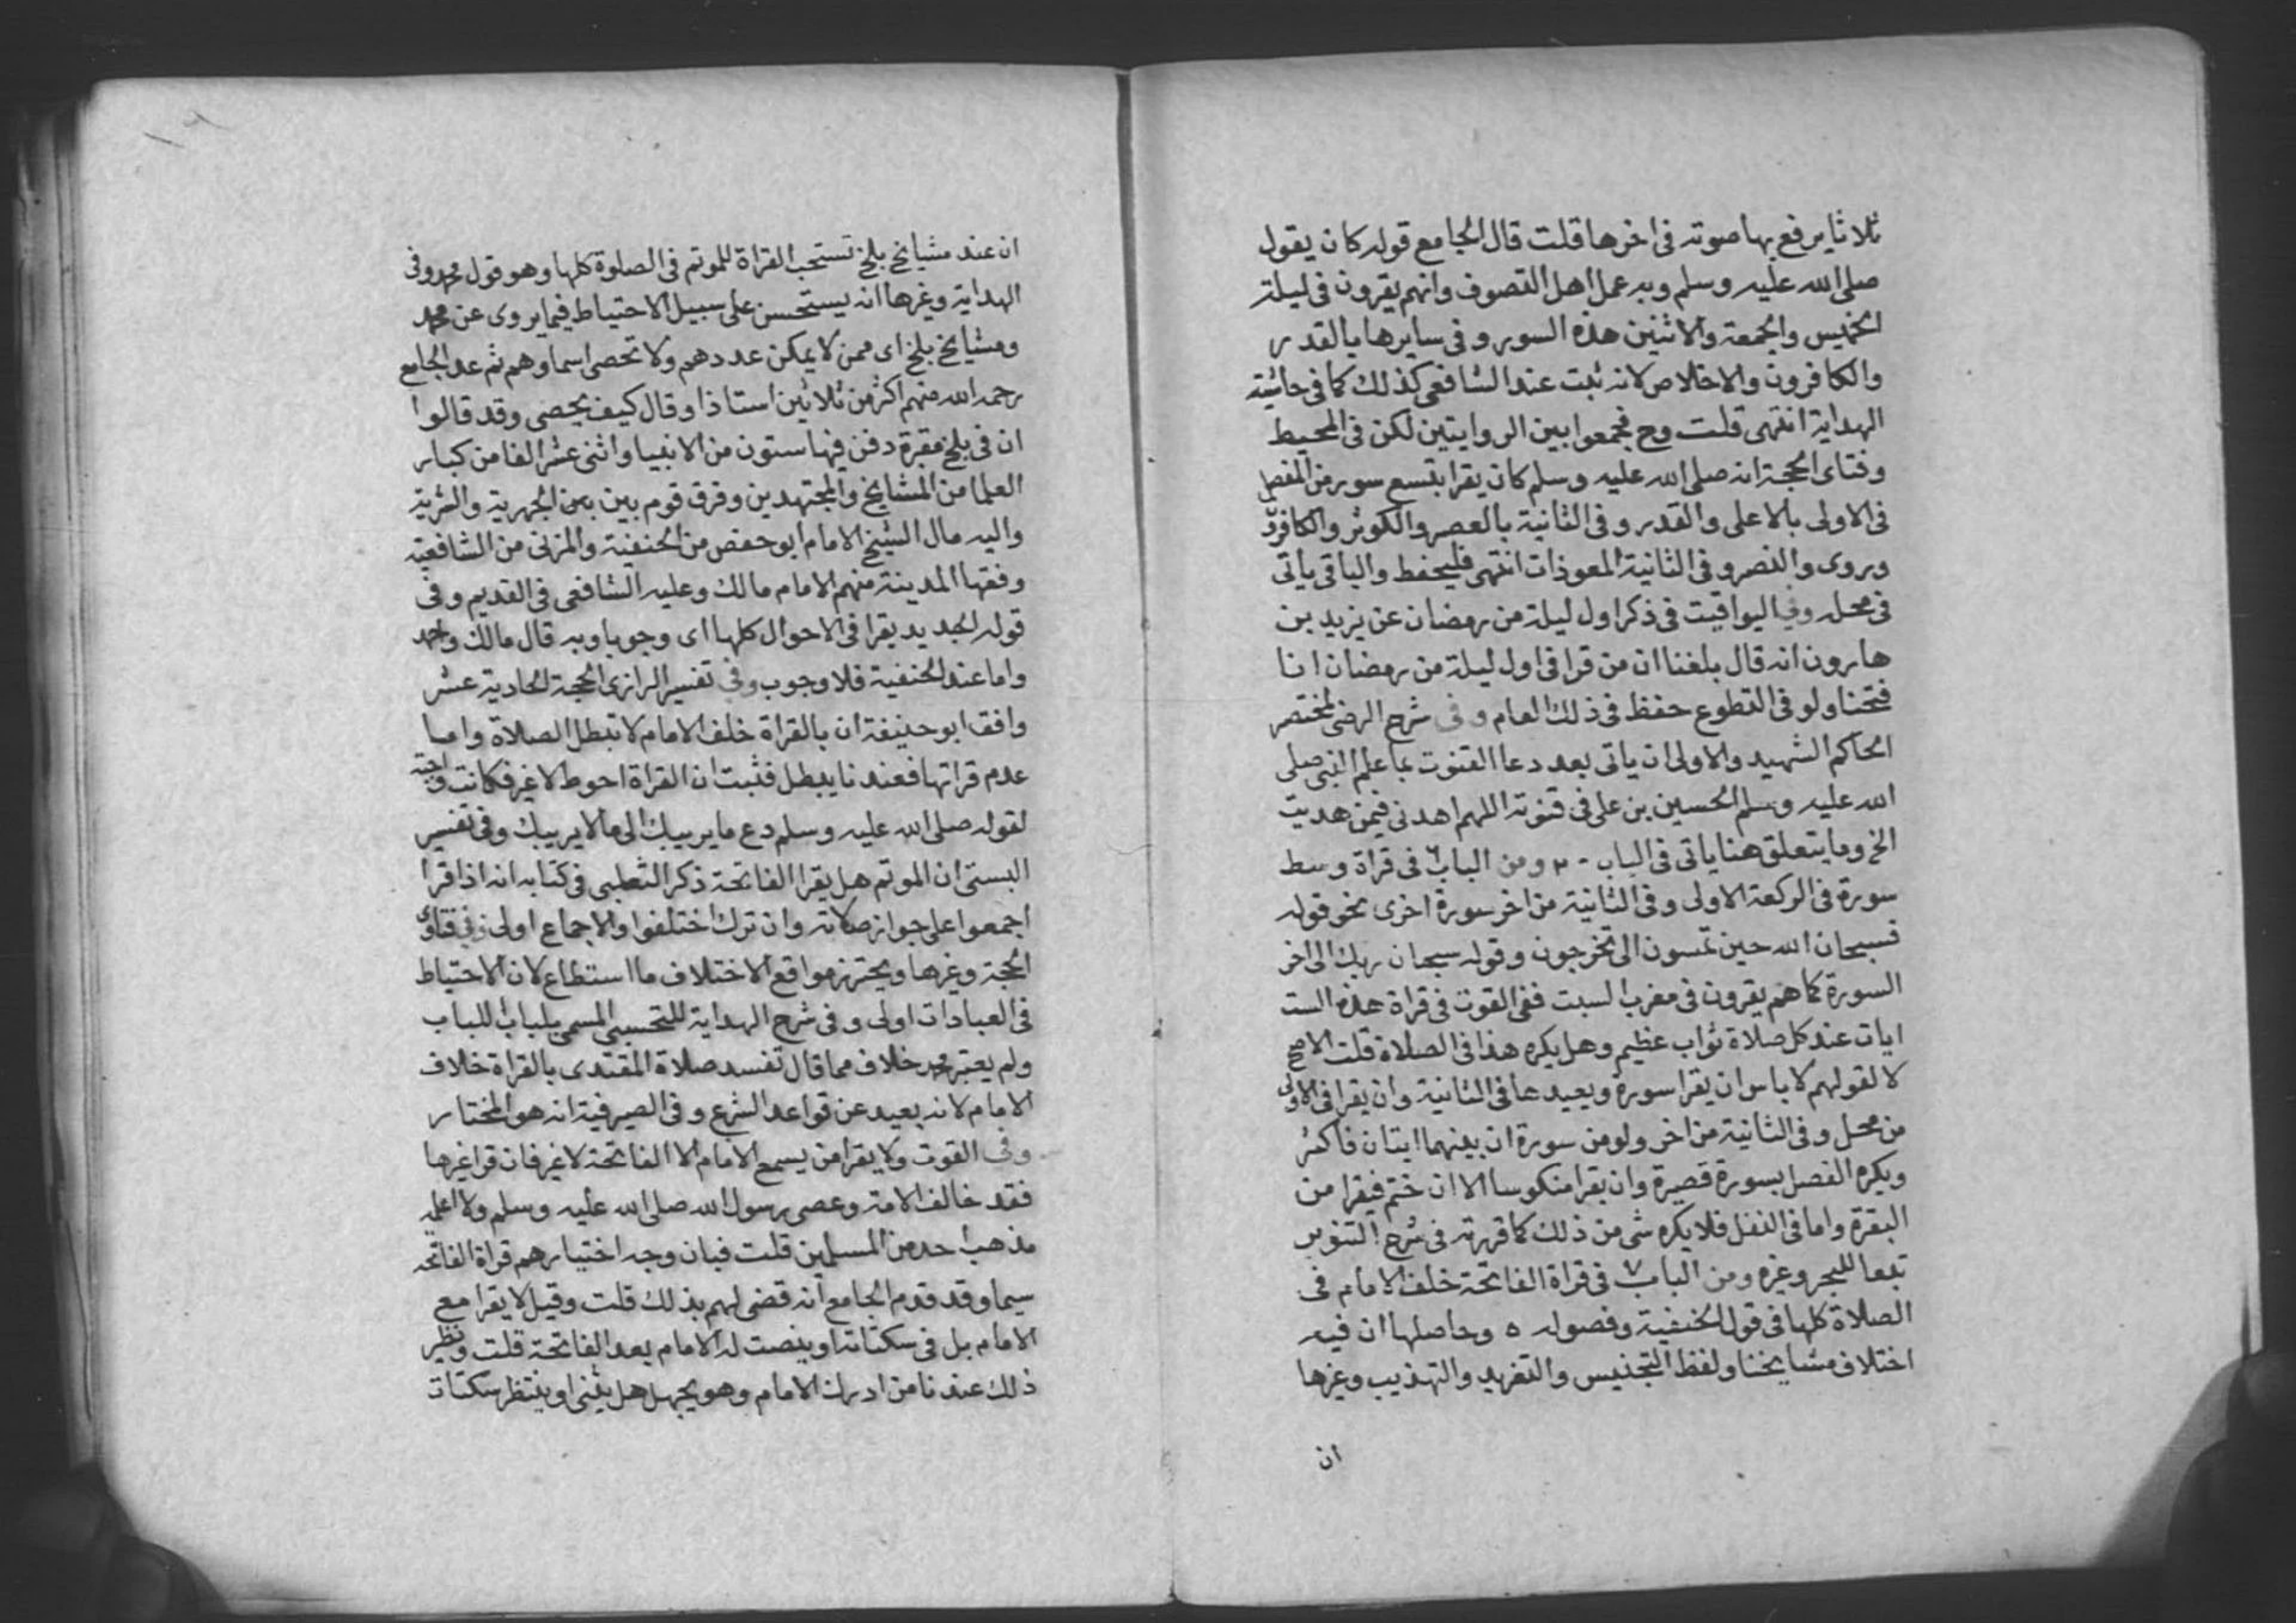 ثلاثا يرفع بها صوته فى اخرها قلت قال الجامع قوله كان يقول
صلى الله عليه وسلم وبه عمل اهل التصوف وانهم يقرون فى ليلة
الخميس والجمعة والاثنين هذه السور وفى سايرها بالقدر
والكافرون والاخلاص لانه ثبت عند الشافعى كذلك كما فى حاشية
الهداية انتهى قلت وح فجمعوا بين الروايتين لكن فى المحيط
وفتاى الحجة انه صلى الله عليه وسلم كان يقرا بتسع سور من المفصل
فى الاولى بالاعلى والقدر وفى الثانية بالعصر والكوثر والكافرون
وروى والنصر وفى الثانية المعوذات انتهى فليحفظ والباقى ياتى
فى محله وفى اليواقيت فى ذكر اول ليلة من رمضان عن يزيد بن
هارون انه قال بلغنا ان من قرا فى اول ليلة من رمضان انا
فتحنا ولو فى التطوع حفظ فى ذلك العام وفى شرح الرضى لمختصر
الحاكم الشهيد والاولى ان ياتى بعد دعا القنوت بما علم النبى صلى
الله عليه وسلم الحسين بن على فى قنوته اللهم اهدنى فيمن هديت
الخ وما يتعلق هنا ياتى فى الباب ٢٠ ومن الباب ٦ فى قراة وسط
سورة فى الركعة الاولى وفى الثانية من اخر سورة اخرى نحو قوله
فسبحان الله حين تمسون الى تخرجون وقوله سبحان ربك الى اخر
السورة كما هم يقرون فى مغرب السبت ففى القوت فى قراة هذه الست
ايات عند كل صلاة ثواب عظيم وهل يكره هذا فى الصلاة قلت الاصح
لا لقولهم لا باس ان يقرا سورة ويعيدها فى الثانية وان يقرا فى الاولى
من محل وفى الثانية من اخر ولو من سورة ان بينهما ايتان فاكثر
ويكره الفصل بسورة قصيرة وان يقرا منكوسا الا ان ختم فيقرا من
البقرة واما فى النفل فلا يكره شى من ذلك كما قررته فى شرح التنوير
تبعا للبحر وغيره ومن الباب ٧ فى قراة الفاتحة خلف الامام فى
الصلاة كلها فى قول الحنفية وفصوله ٥ وحاصلها ان فيه
اختلاف مشايخنا ولفظ التجنيس والتفريد والتهذيب وغيرها
ان
ان عند مشايخ بلخ تستحب القراة للموتم فى الصلوة كلها وهو قول محمد وفى
الهداية وغيرها انه يستحسن على سبيل الاحتياط فيما يروى عن محمد
ومشايخ بلخ اى ممن لا يمكن عددهم ولا تحصى اسماوهم ثم عد الجامع
رحمه الله منهم اكثر من ثلاثين استاذا وقال كيف يحصى وقد قالوا
ان فى بلخ مقبرة دفن فيها ستون من الانبيا واثنى عشر الفا من كبار
العلما من المشايخ والمجتهدين وفرق قوم بين الجهرية والسرية
واليه مال الشيخ الامام ابو حفص من الحنفية والمزنى من الشافعية
وفقها المدينة منهم الامام مالك وعليه الشافعى فى القديم وفى
قوله الجديد يقرا فى الاحوال كلها اى وجوبا وبه قال مالك واحمد
واما عند الحنفية فلا وجوب وفى تفسير الرازى الحجة الحادية عشر
وافق ابو حنيفة ان بالقراة خلف الامام لا تبطل الصلاة واما
عدم قراتها فعندنا يبطل فثبت ان القراة احوط لا غير فكانت واجبة
لقوله صلى الله عليه وسلم دع ما يريبك الى ما لا يريبك وفى تفسير
البستى ان الموتم هل يقرا الفاتحة ذكر الثعلبى فى كتابه انه اذا قرا
اجمعوا على جواز صلاته وان ترك اختلفوا والاجماع اولى وفى فتاوى
الحجة وغيرها ويحترز مواقع الاختلاف ما استطاع لان الاحتياط
فى العبادات اولى وفى شرح الهداية المسمى بلباب اللباب
ولم يعتبر محمد خلاف مما قال تفسد صلاة المقتدى بالقراة خلاف
الامام لانه بعيد عن قواعد الشرع وفى الصيرفية انه هو المختار
وفى القوت ولا يقرا من يسمع الامام الا الفاتحة لا غير فان قرا غيرها
فقد خالف الامة وعصى رسول الله صلى الله عليه وسلم ولا اعلمه
مذهب احد من المسلمين قلت فبان وجه اختيارهم قراة الفاتحه
سيما وقد قدم الجامع انه قضى لهم بذلك قلت وقيل لا يقرا مع
الامام بل فى سكتاته او ينصت له الامام بعد الفاتحة قلت ونظير
ذلك عندنا من ادرك الامام وهو يجهل هل يثنى او ينتظر سكتات